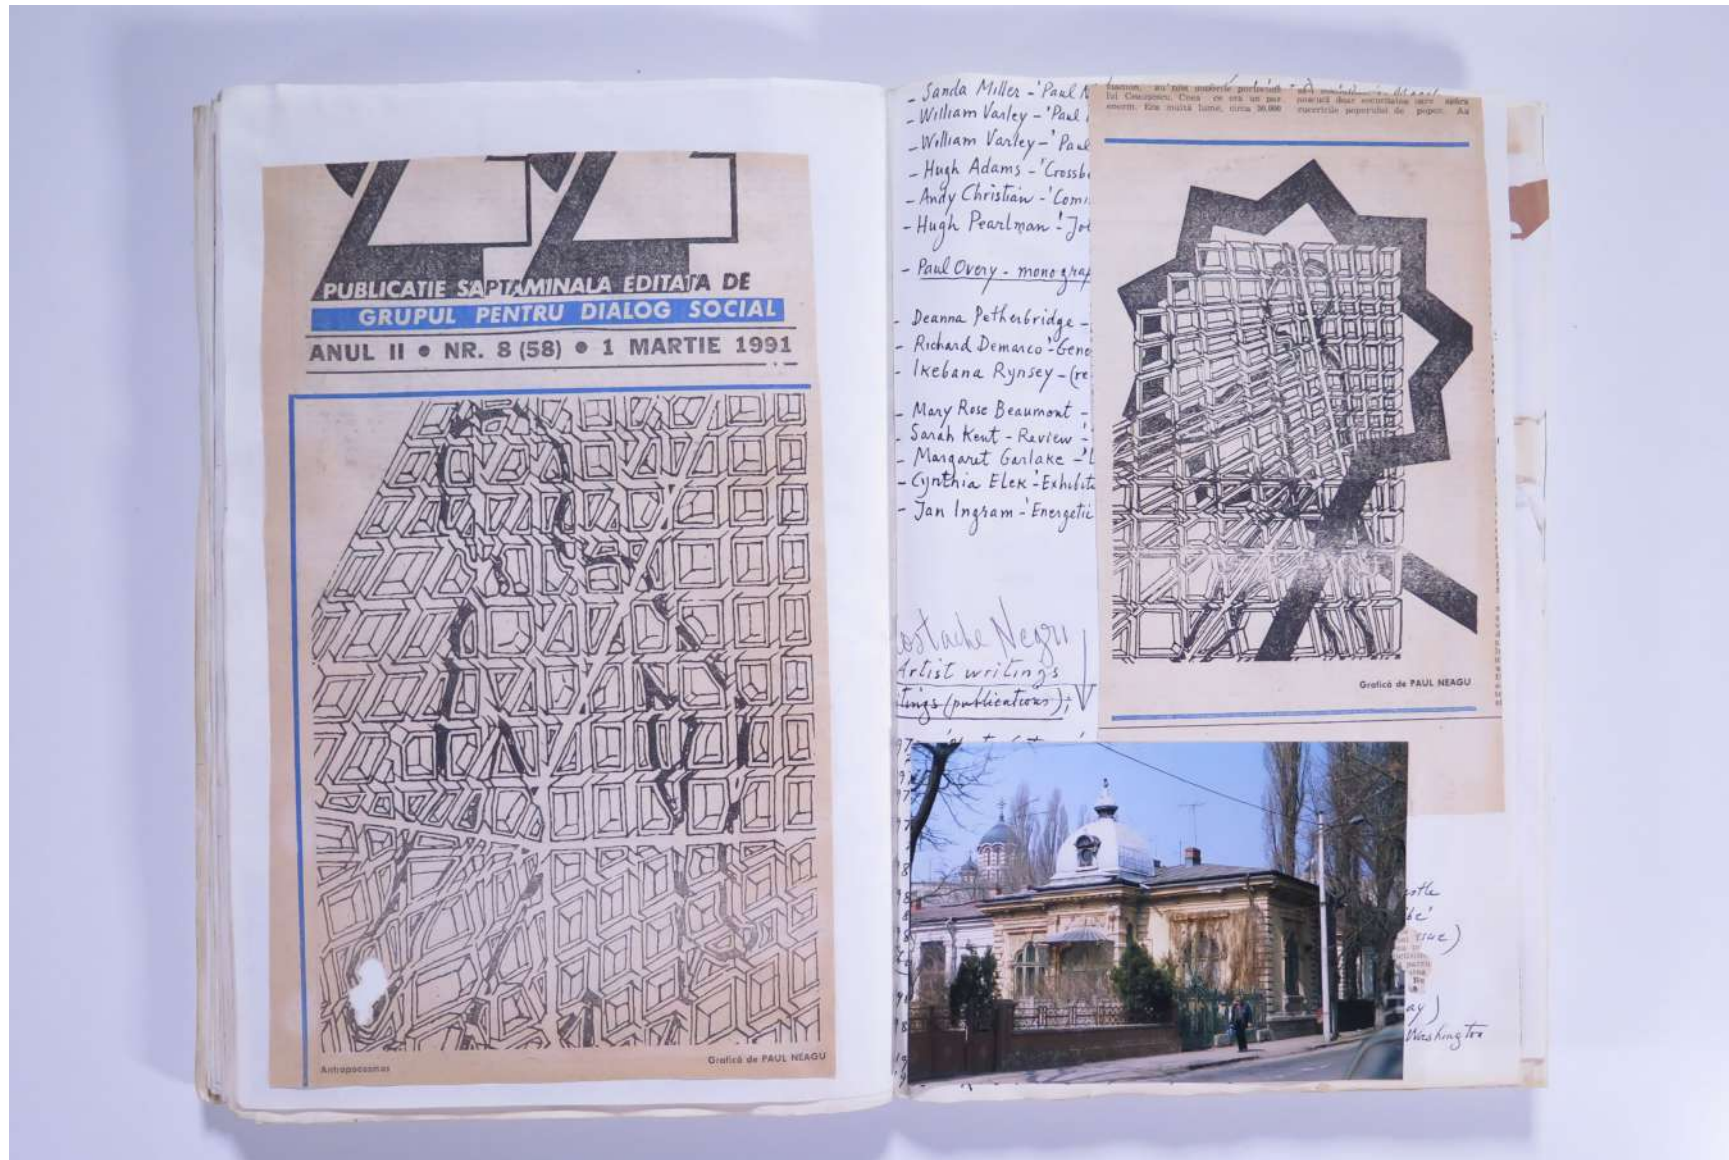 22
PUBLICATIE SAPTAMINALA EDITATA DE
GRUPUL PENTRU DIALOG SOCIAL
ANUL II • NR. 8 (58) • 1 MARTIE 1991
Antropocosmos
Grafică de PAUL NEAGU
- Sanda Miller - 'Paul N
- William Varley - 'Paul
- William Varley - 'Paul
- Hugh Adams - 'Crossb
- Andy Christian - 'Comi
- Hugh Pearlman - 'Jo
- Paul Overy - monograp
- Deanna Petherbridge -
- Richard Demarco - 'Gen
- Ikebana Rynsey - (re
- Mary Rose Beaumont -
- Sarah Kent - Review -
- Margaret Garlake - 'L
- Cynthia Elek - 'Exhibit
- Jan Ingram - 'Energetic
ostache Negri
Artist writings
tings (publications);
lui Ceaușescu. Ceea ce era un pas
enorm. Era multă lume, circa 30.000
cuceririle poporului de popor. Au
Grafică de PAUL NEAGU
stle
be'
ssue)
ay)
Washington